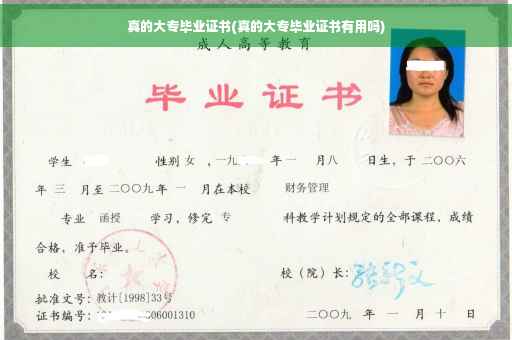 真的大专毕业证书(真的大专毕业证书有用吗)
成人高等教育
毕业证书
学生 性别 女 ，一九 年 一 月八 日生，于 二〇〇六
年 三 月至 二〇〇九年 一 月在本校 财务管理
专业 函授 学习，修完 专 科教学计划规定的全部课程，成绩
合格，准予毕业。
校 名： 校（院）长：
批准文号：教计[1998]33号
证书编号： 06001310 二〇〇九 年 一 月 十 日